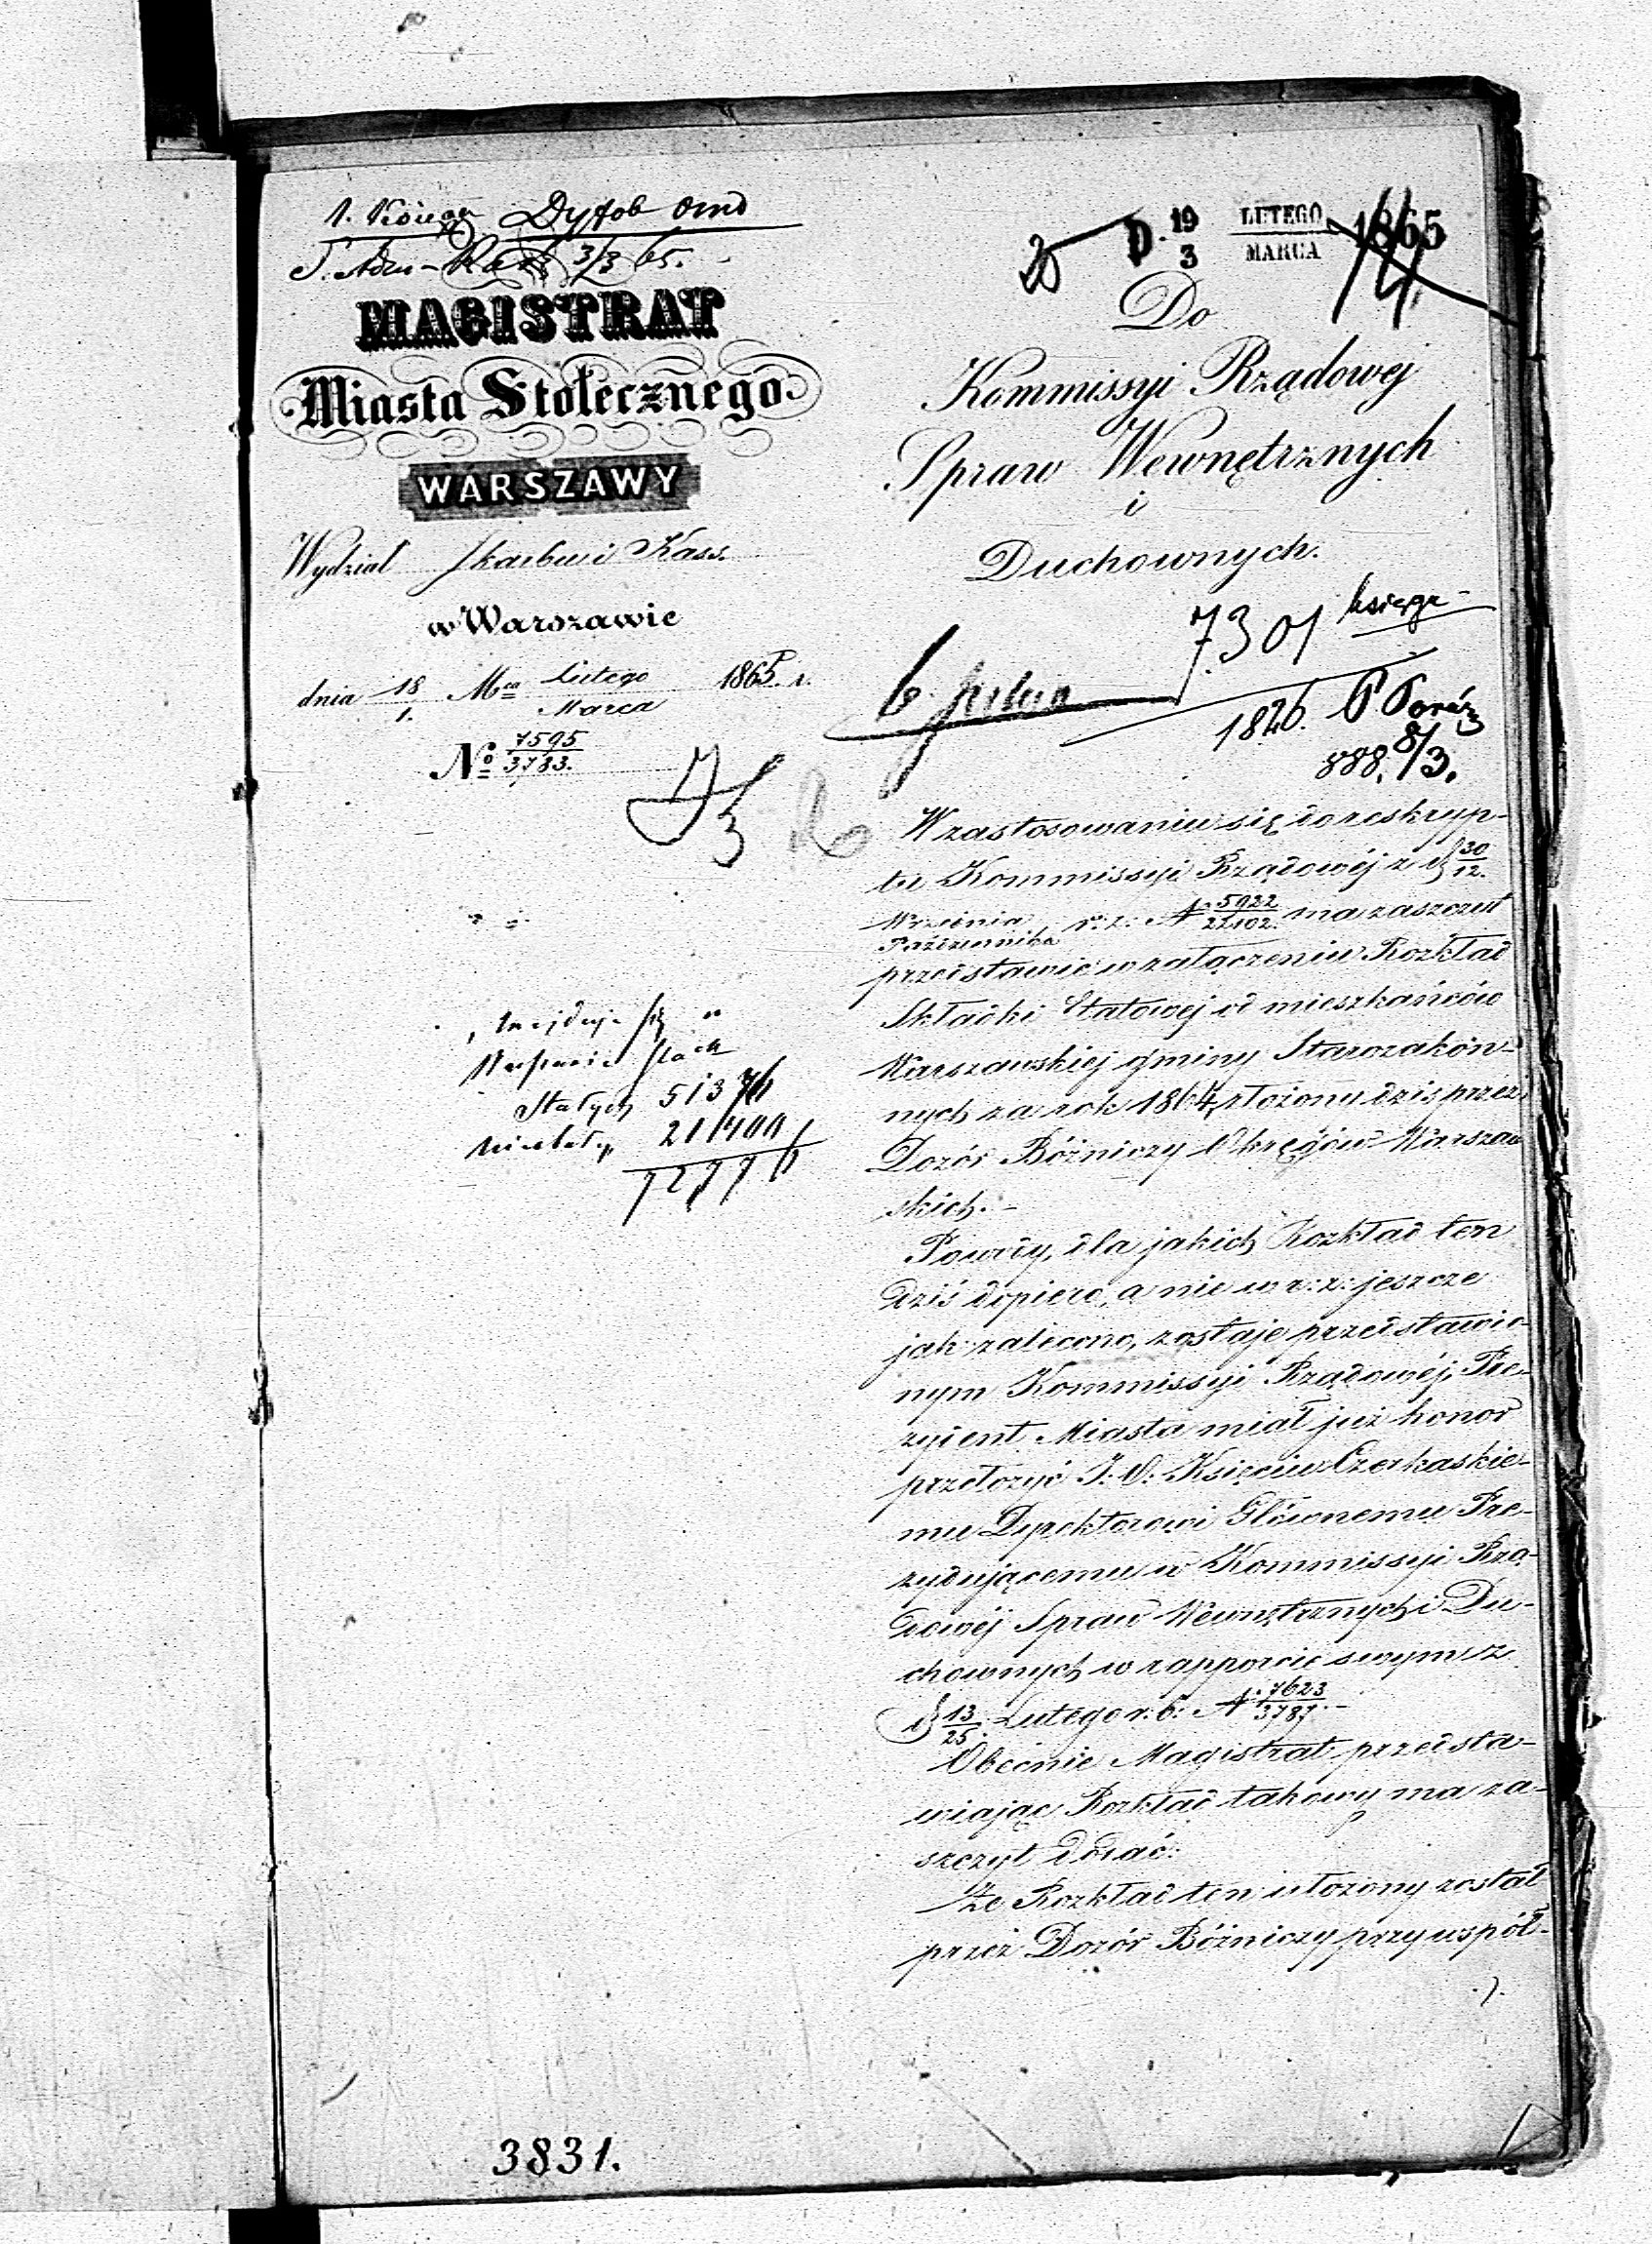 MAGISTRAT
Miasta Stołecznego
WARSZAWY
Wydział Skarbu i Kass.
w Warszawie
dnia 18/1. Mca Lutego/Marca 1865 r.
No 7595/3783.
3/3 65.
znajduje się
Stałych 51376
21400
72776
3831.
D. 19/3 LUTEGO/MARCA 1865
Do
Kommissyi Rządowej
Spraw Wewnętrznych
i
Duchownych.
7301 księga
1826.
888. 8/3.
W zastosowaniu się do reskryp-
tu Kommissyi Rządowéj z d. 30/12.
Września/Października r: z: N 5922/22102. ma zaszczyt
przedstawić w załączeniu Rozkład
Składki Etatowej od mieszkańców
Warszawskiej gminy Starozakon-
nych za rok 1864, złożony dziś przez
Dozór Bóżniczy Okręgów Warszaw
skich. -
Powody, dla jakich Rozkład ten
dziś dopiero, a nie w r: z: jeszcze
jak zalecono, zostaje przedstawio-
nym Kommissyi Rządowéj, Pre-
zydent Miasta miał już honor
przełożyć J: O: Księciu Czerkaskie-
mu Dyrektorowi Głównemu Pre-
zydującemu w Kommissyi Rzą-
dowéj Spraw Wewnętrznych i Du-
chownych w rapporcie swym z
d. 13/25 Lutego r: b: N: 7623/3787. -
Obecnie Magistrat przedsta-
wiając Rozkład takowy ma za-
szczyt dodać:
Że Rozkład ten ułożony został
przez Dozór Bóżniczy przy współ-